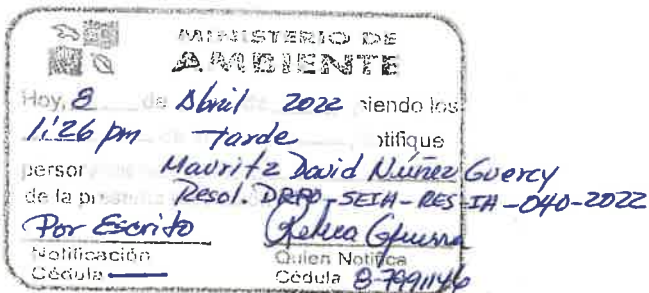 MINISTERIO DE
AMBIENTE
Hoy, 8 de Abril de 2022 siendo las
1:26 pm Tarde otifique
person Mauritz David Núñez Guercy
de la pr Resol. DRPO-SEIA-RES-IA-040-2022
Por Escrito
Notificación Quien Notifica
Cédula Cédula 8-7991146